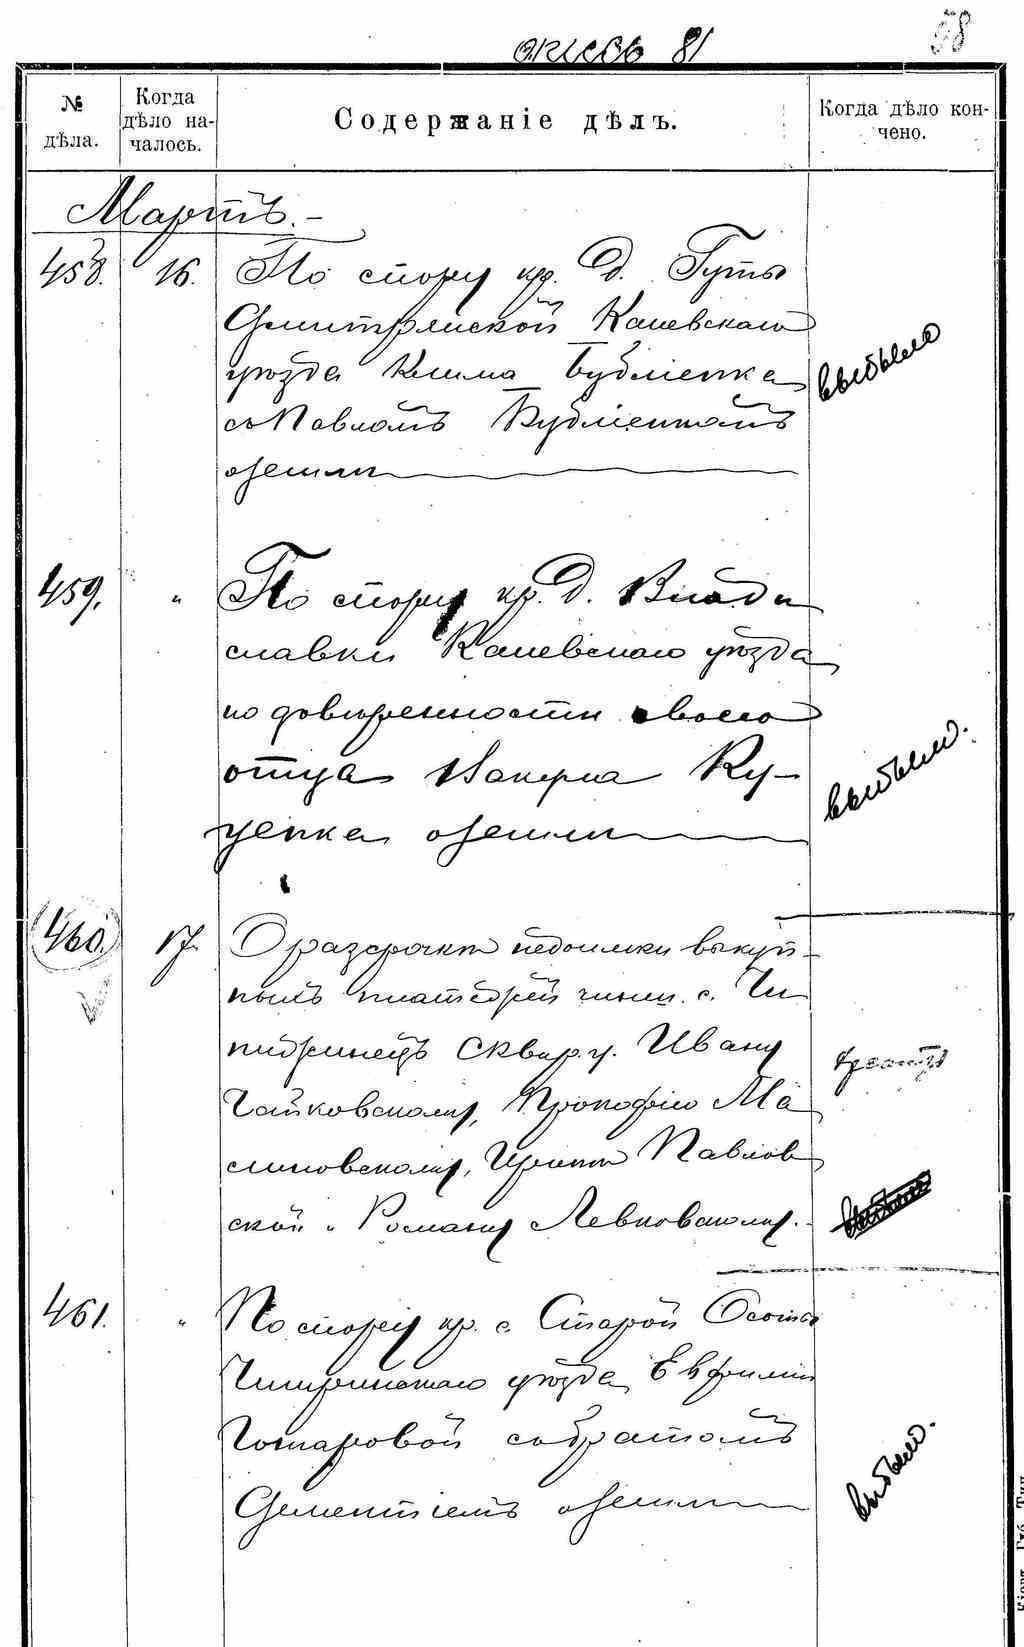 опись 81
58
№ дѣла.
Когда дѣло началось.
Содержаніе дѣлъ.
Когда дѣло кончено.
Мартъ.
458. 16. По спору кр. д. Гуты
Дмитрянской Каневскаго
уѣзда Клима Бубліенка
съ Павломъ Бубліенкомъ
о земли
выбыло
459. " По спору кр. д. Влади
славки Каневскаго уѣзда
по довѣренности своего
отца Захарка Ку-
ценка о земли
выбыло.
460. 17. О разсрочкѣ недоимки выкуп-
ныхъ платежей чинш. с. Чи
пижинецъ Сквир. у. Ивану
Чайковскому, Прокофію Ма
линовскому, Иринѣ Павлов
ской и Роману Левковскому.
461. " По спору кр. с. Старой Осоты
Чигиринскаго уѣзда Евфиміи
Гончаровой съ братомъ
Дементіемъ о земли
выбыло.
Кіевъ. Губ. Тип.